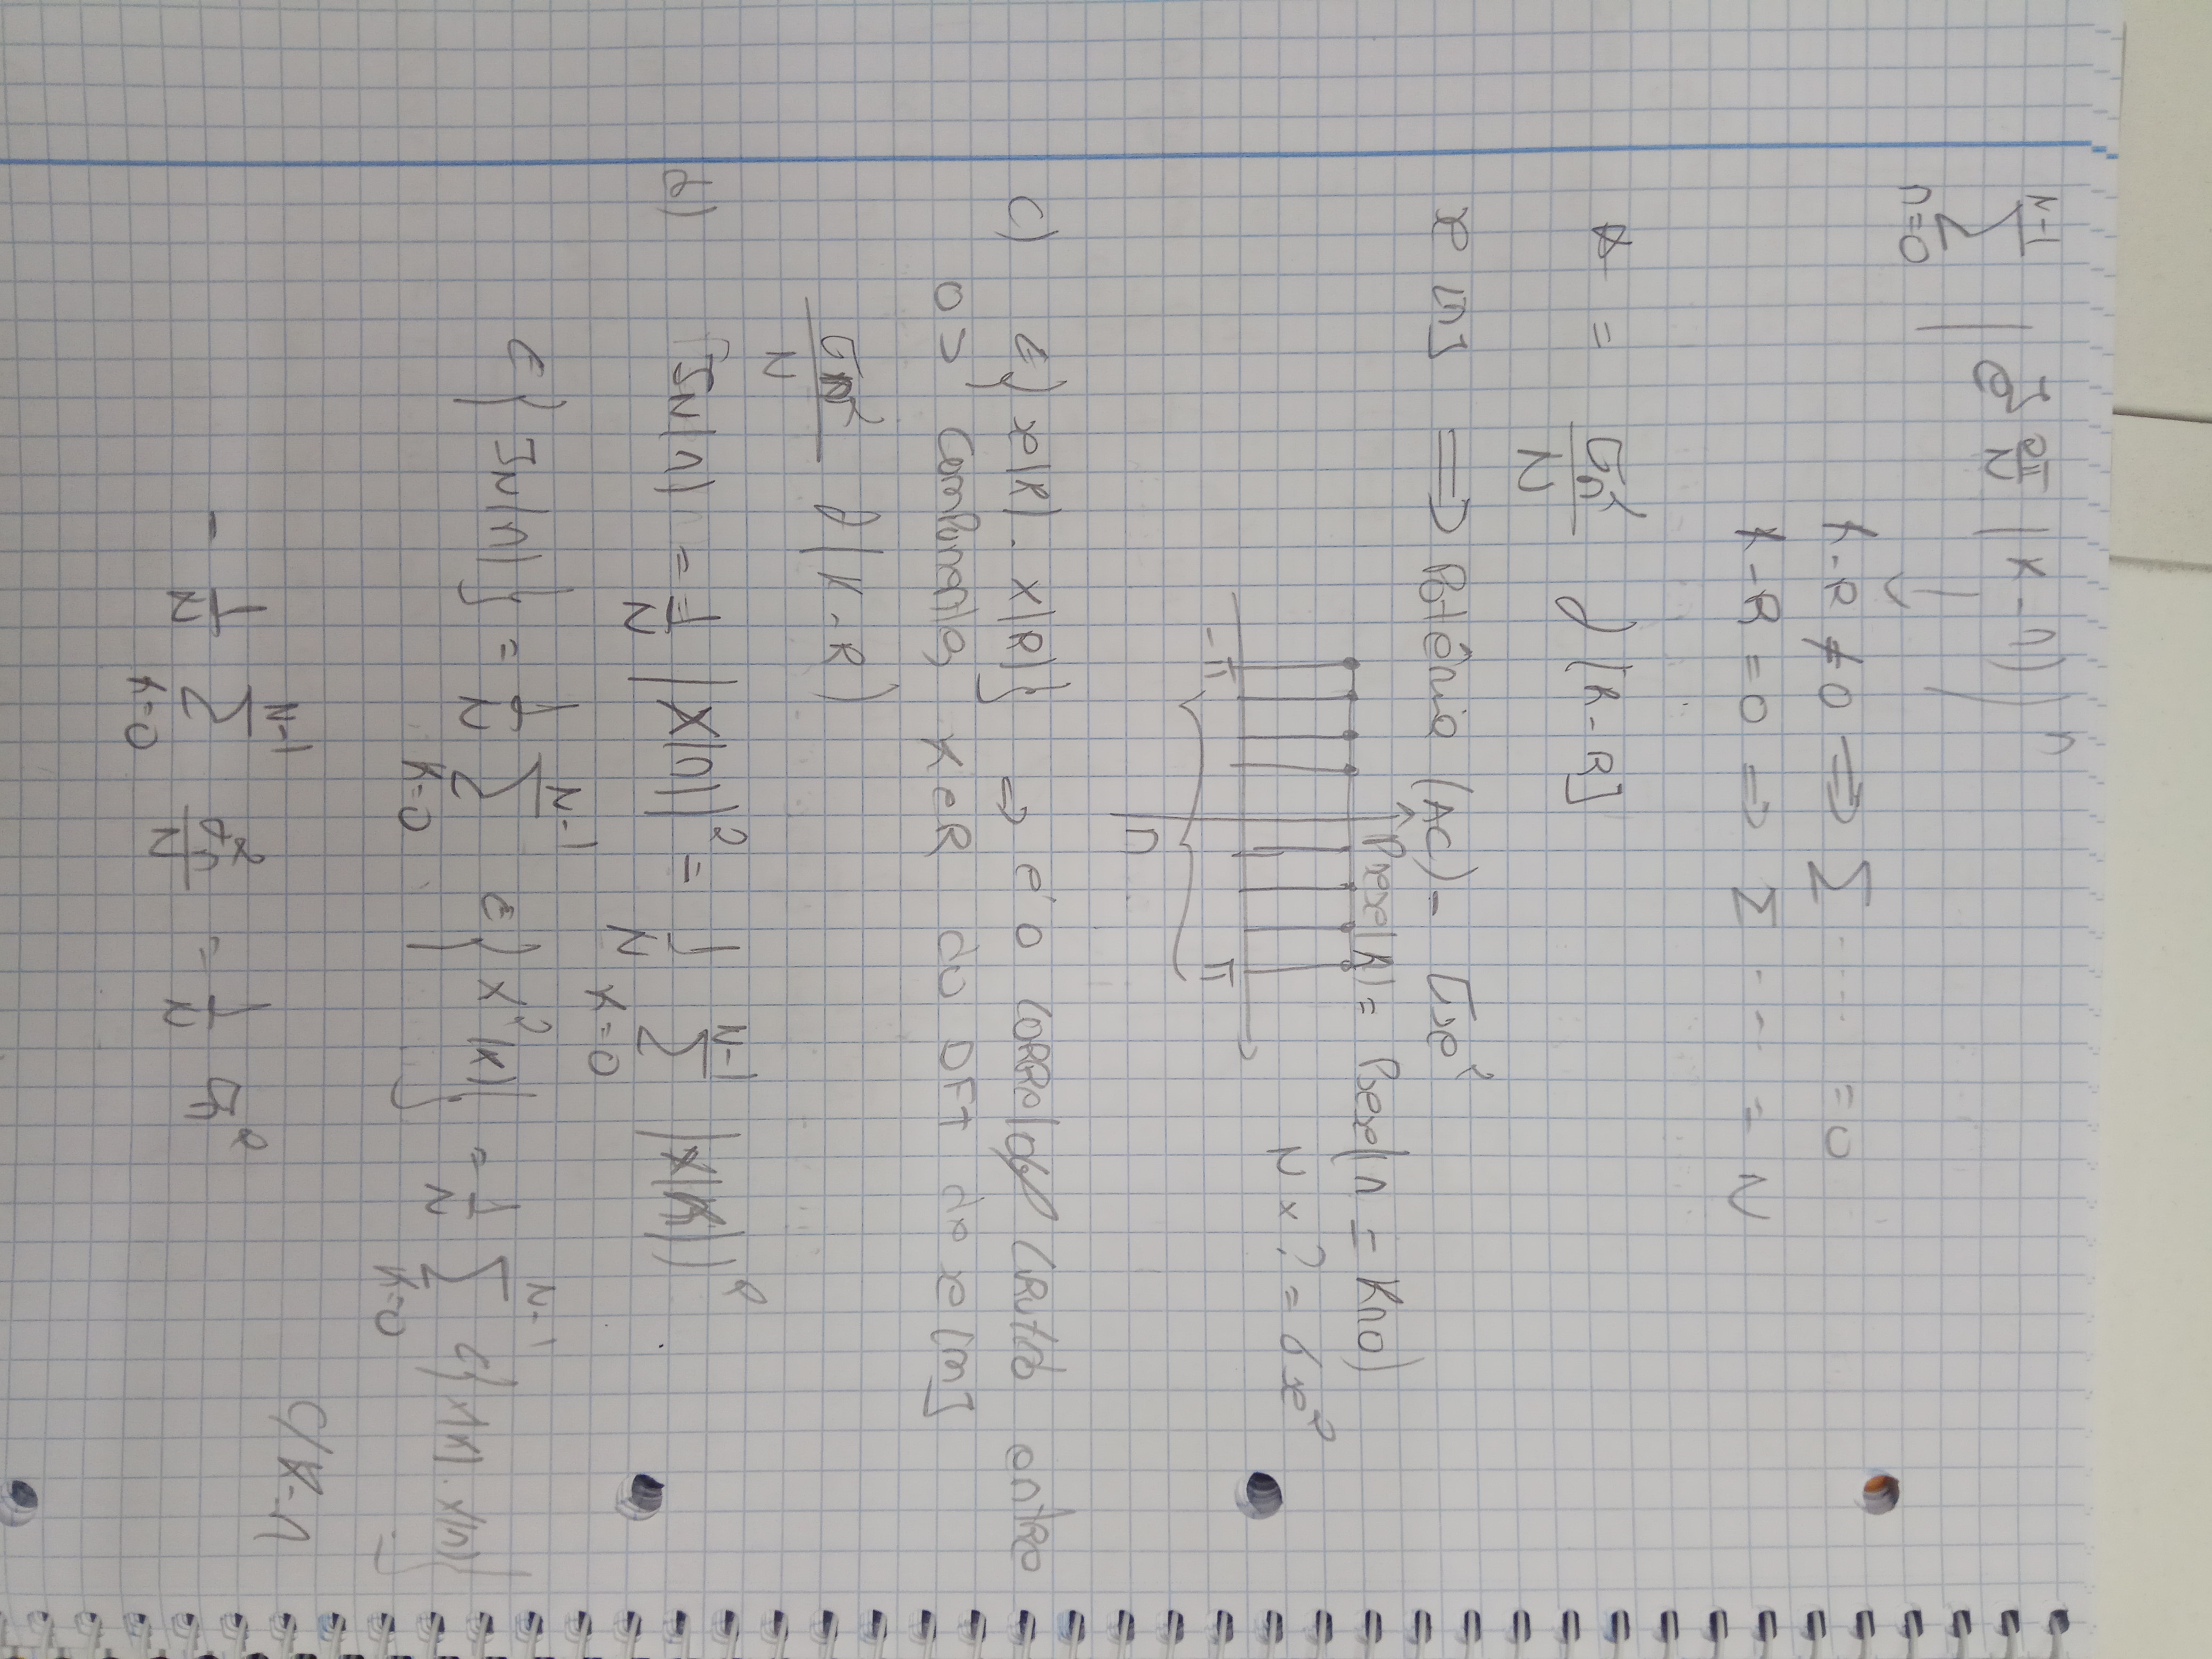 N-1
∑ ( e^{j 2π/N (K-n)} )^n
n=0
K-R ≠ 0 ⟹ ∑ ---- = 0
K-R = 0 ⟹ ∑ --- = N
= σn²/N ∂[R-R]
x[n] ⟹ Potência (AC) - σx²
Pxx(K) = Pxx(n = Kn0)
N x ? = σx²
-π π
n
c) E{x(R). X(R)} ⇒ é o CORRelação CRUzado entre
os componentes K e R do DFT de x[n]
σn²/N ∂(K-R)
d) IN(n) = 1/N |X(n)|² = 1/N ∑_{K=0}^{N-1} |X(K)|²
E{IN(n)} = 1/N ∑_{K=0}^{N-1} E{X²(K)} = 1/N ∑_{K=0}^{N-1} E{X(K). X(n)}
c/K-n
= 1/N ∑_{K=0}^{N-1} σn²/N = 1/N σn²